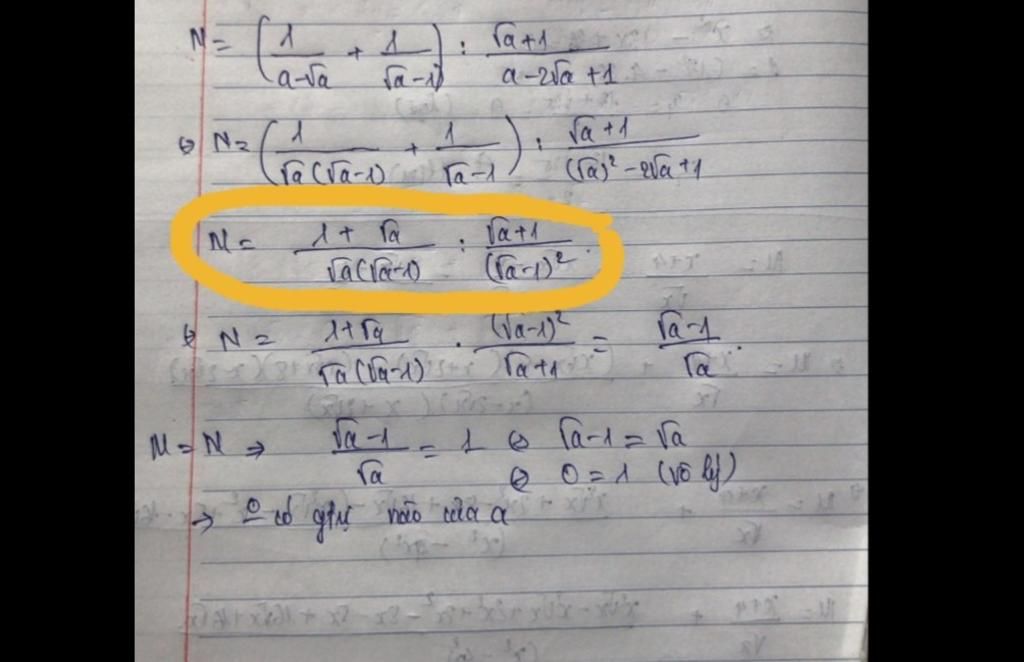 N = (1/(a-√a) + 1/(√a-1)) : (√a+1)/(a-2√a+1)
⇔ N = (1/(√a(√a-1)) + 1/(√a-1)) : (√a+1)/((√a)² - 2√a+1)
N = (1+√a)/(√a(√a-1)) : (√a+1)/(√a-1)².
⇔ N = (1+√a)/(√a(√a-1)) . (√a-1)²/(√a+1) = (√a-1)/√a.
M = N ⇒ (√a-1)/√a = 1 ⇔ √a-1 = √a
⇔ 0 = 1 (vô lý)
→ có gtrị nào của a